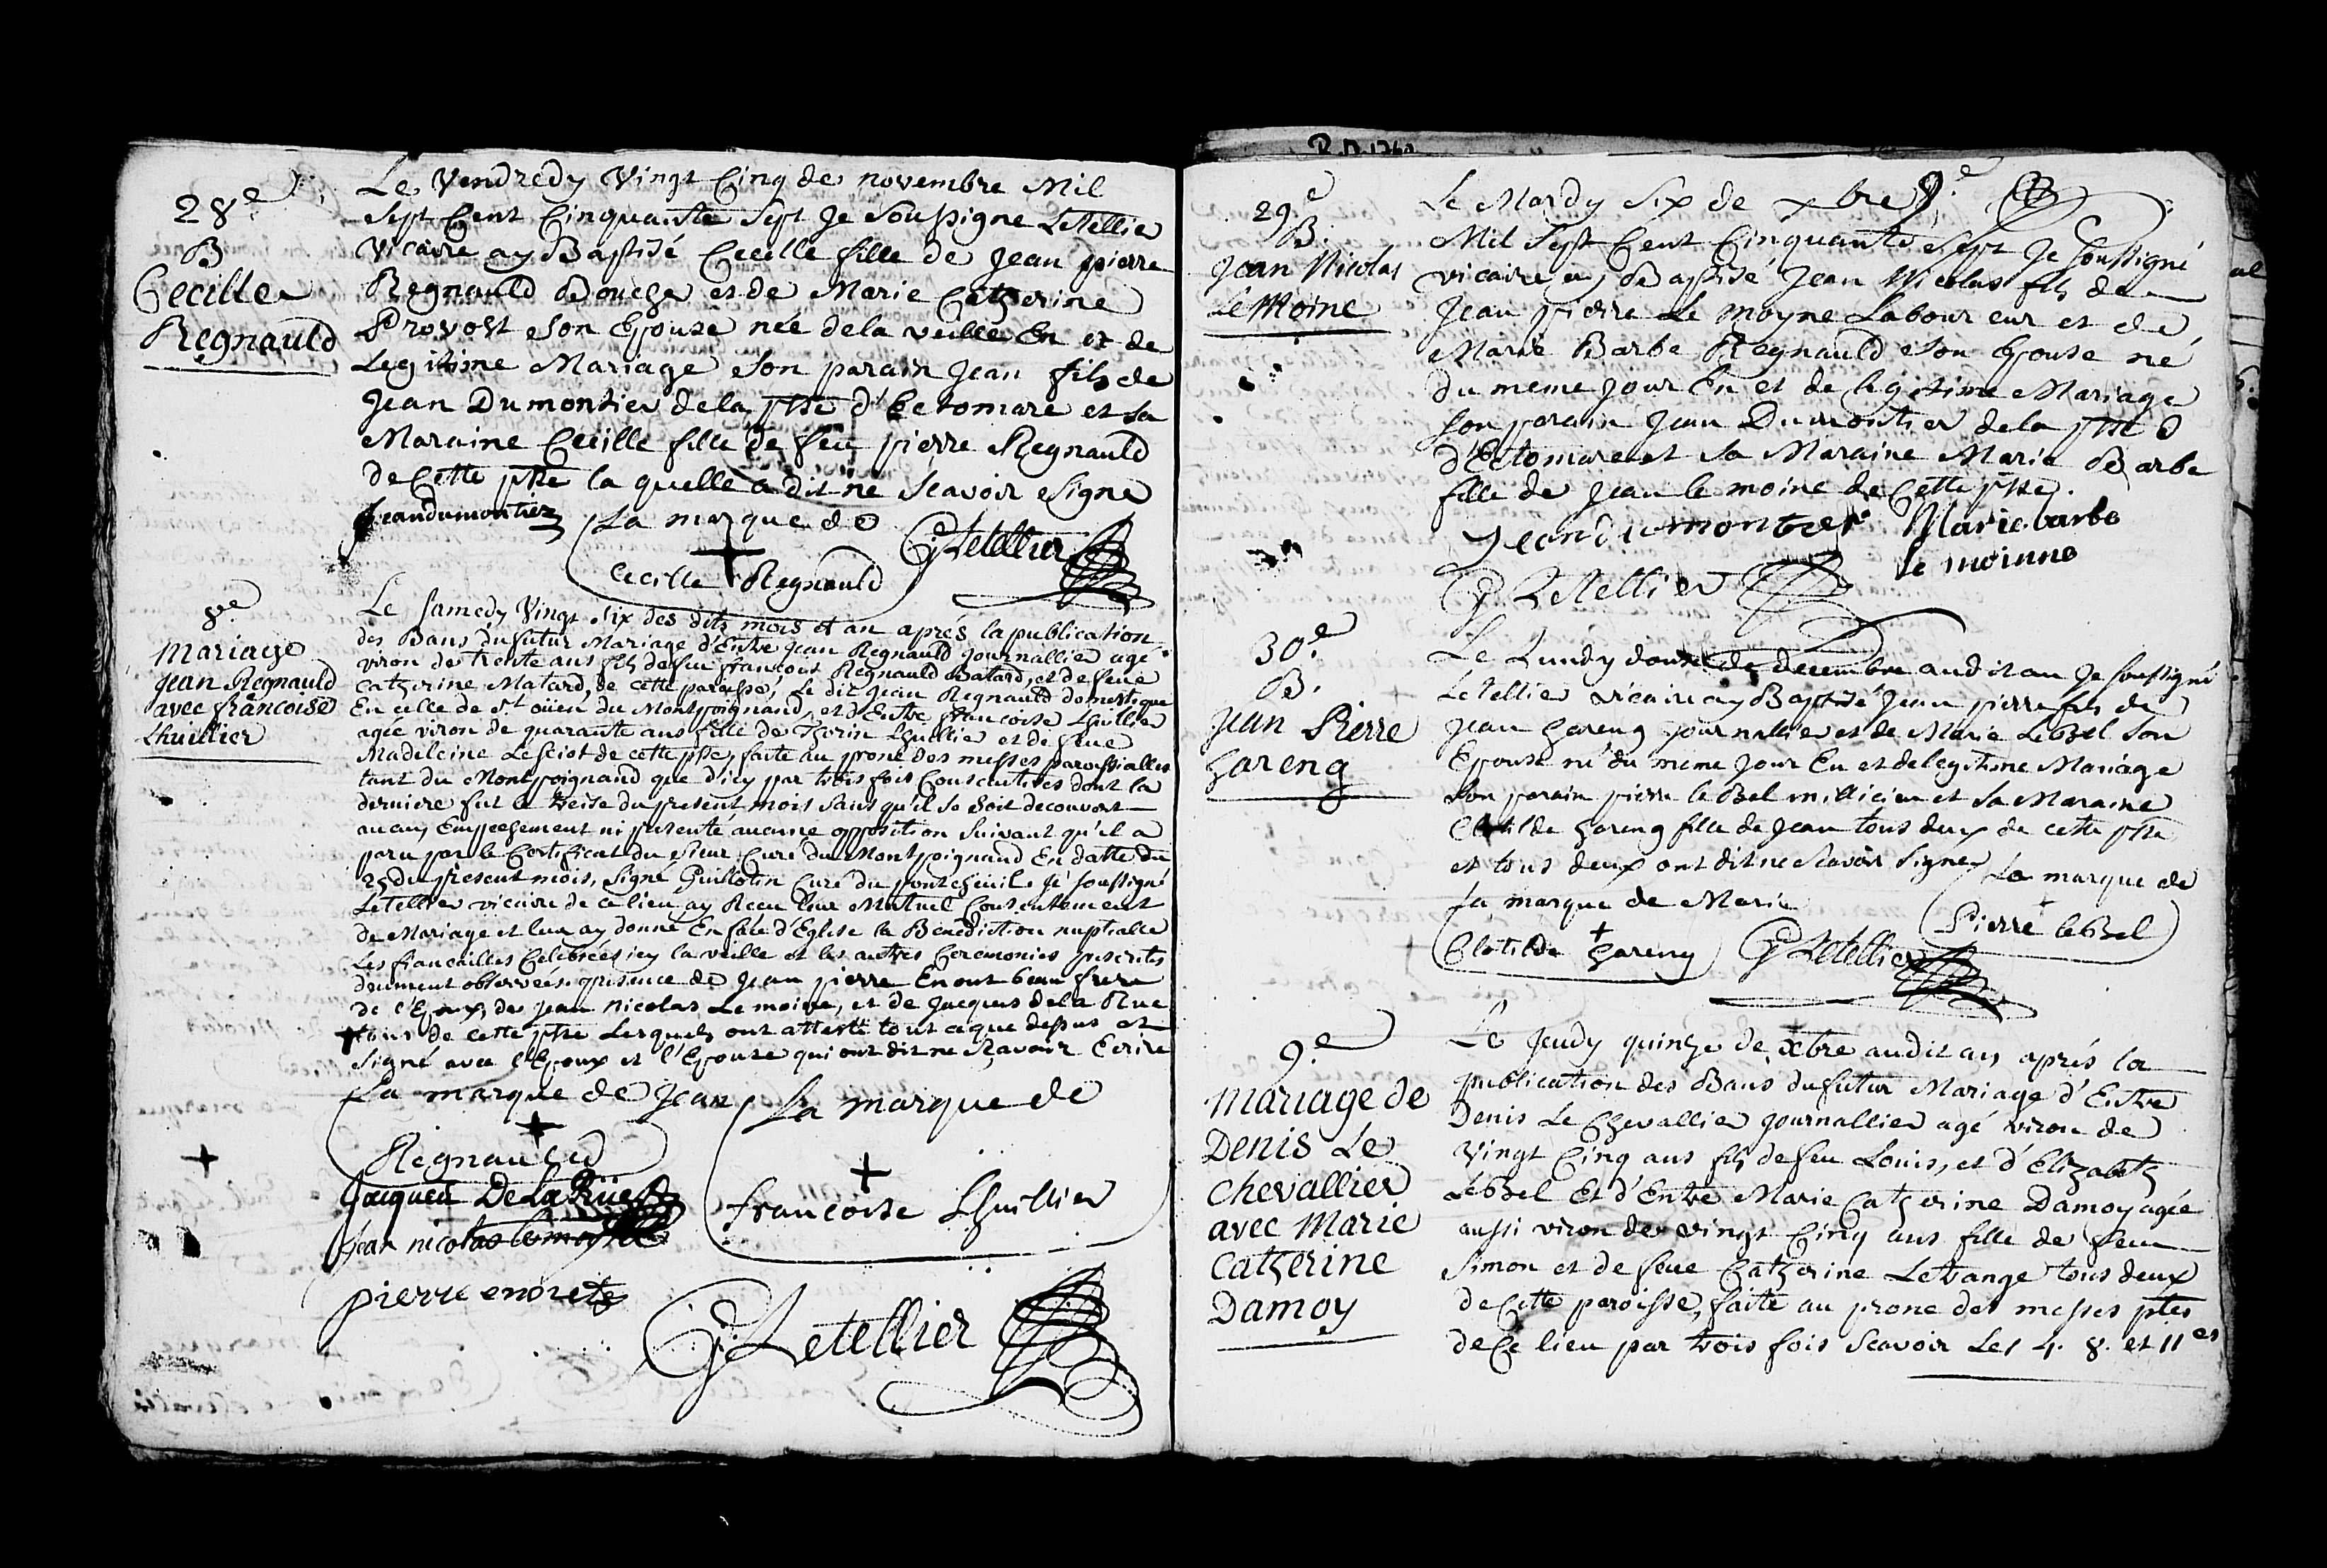 28e
B
Cecille
Regnauld
Le Vendredy Vingt Cinq de novembre Mil
Sept Cent Cinquante Sept Je Soussigné Letellier
Vicaire ay Baptisé Cecille fille de Jean pierre
Regnauld Boucher et de Marie Catherine
Provost Son Epouse née de la veille En et de
Legitime Mariage Son parain Jean fils de
Jean Dumontier de la psse d'Ectomare et sa
Maraine Cecille fille de feu pierre Regnauld
de Cette psse la quelle a dit ne Scavoir Signer
jeandumontier
La marque de
+
Cecille Regnauld
Letellier
8e
Mariage
Jean Regnauld
avec francoise
Lhuillier
Le Samedy Vingt Six des dits mois et an aprés la publication
des Bans du futur Mariage d'Entre Jean Regnauld Journallier agé
viron de trente ans fils de feu francois Regnauld Batard, et de feue
Catherine Matard, de cette paroisse, Le dit Jean Regnauld domestique
En celle de St oüen du Montpoignand, et d'Entre francoise Lhuillier
agée viron de quarante ans fille de Lhuillier et de feue
Madeleine de cette psse, faite au prone des messes paroissialles
tant du Montpoignand que d'icy par trois fois Consecutives dont la
derniere fut le treise du present mois Sans qu'il Se Soit decouvert
aucun Empechement ni presenté aucune opposition Suivant qu'il a
paru par le Certificat du Sieur Curé du Montpoignand En datte du
25 du present mois, Signé Guillotin Curé du Je Soussigné
Letellier vicaire de ce lieu ay Recu leur Mutuel Consentement
de Mariage et leur ay donné En face d'Eglise la Benediction nuptialle
Les fiancailles Celebrées icy la veille et les autres Ceremonies prescrites
duement observées. presence de Jean pierre beau frere
de l'Epoux, de Jean Nicolas Le moine, et de Jacques de la Rue
+ tous de cette psse Lesquels ont attesté tout ce que dessus et
Signé avec l'Epoux et l'Epouse qui ont dit ne Scavoir Ecrire
La marque de Jean
+
Regnauld
La marque de
+
francoise Lhuillier
Jacques De La Rüe
jean nicolas lemoyne
pierre
Letellier
29e
B.
Jean Nicolas
Le Moine
Le Mardy Six de xbre
Mil Sept Cent Cinquante Sept Je Soussigné
vicaire ay Baptisé Jean Nicolas fils de
Jean pierre Le moyne Laboureur et de
Marie Barbe Regnauld Son Epouse né
du meme jour En et de legitime Mariage
Son parain Jean Dumontier de la psse
d'Ectomare et Sa Maraine Marie Barbe
fille de Jean le moine de Cette psse.
Jeandumontier
Marie barbe
le moinne
Letellier
30e
B.
Jean Pierre
hareng
Le Lundy douse de decembre audit an Je Soussigné
Letellier vicaire ay Baptisé Jean pierre fils de
Jean hareng journallier et de Marie LeBel Son
Epouse né du meme jour En et de legitime Mariage
Son parain pierre le Bel millicien et Sa Maraine
Clotilde hareng fille de Jean tous deux de cette psse
et tous deux ont dit ne Scavoir Signer
La marque de
+
Pierre leBel
La marque de Marie
+
Clotilde hareng
Letellier
9e
Mariage de
Denis Le
Chevallier
avec Marie
Catherine
Damoy
Le Jeudy quinze de xbre audit an aprés la
publication des Bans du futur Mariage d'Entre
Denis Le Chevallier Journallier agé viron de
Vingt Cinq ans fils de feu Louis, et d'Elizabeth
LeBel Et d'Entre Marie Catherine Damoy agée
aussi viron de vingt Cinq ans fille de feu
Simon et de feue Catherine Letrange tous deux
de Cette paroisse, faite au prone des messes
de Ce lieu par trois fois Scavoir Les 4. 8. et 11es